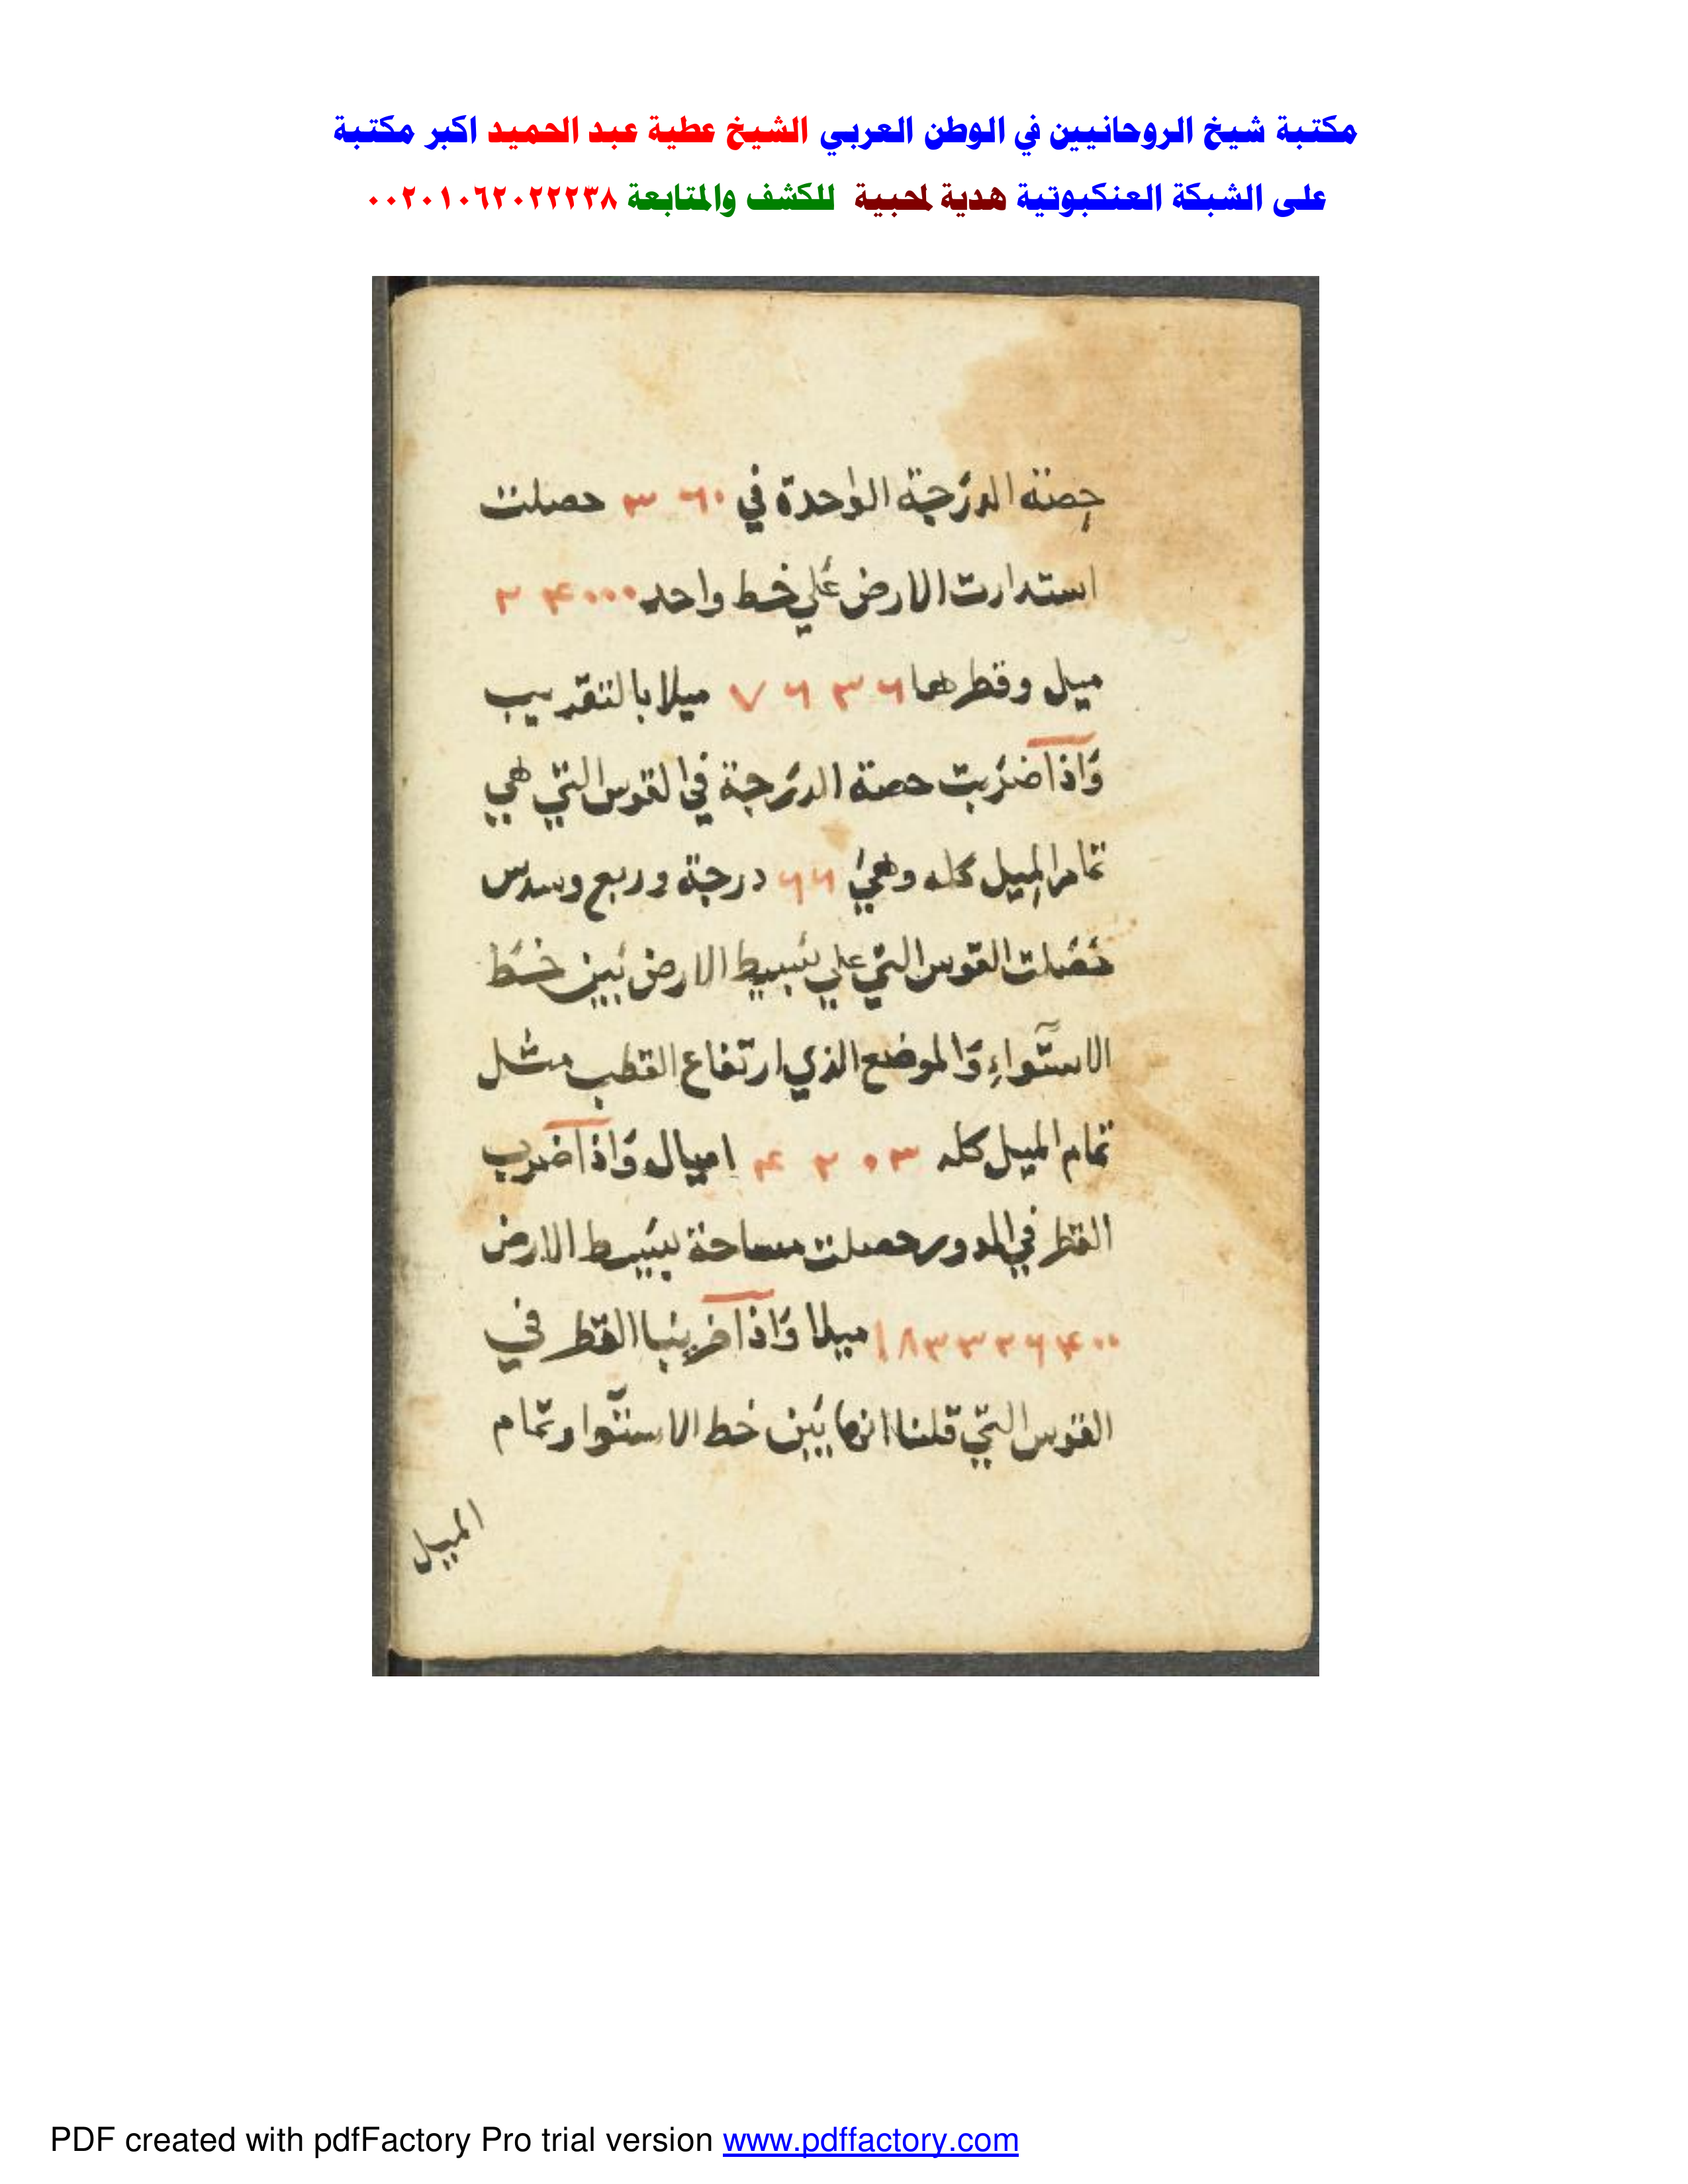 مكتبة شيخ الروحانيين في الوطن العربي الشيخ عطية عبد الحميد اكبر مكتبة
على الشبكة العنكبوتية هدية لمحبية للكشف والمتابعة ٠٠٢٠١٠٦٢٠٢٢٢٣٨
حصة الدرجة الواحدة في ٣٦٠ حصلت
استدارت الارض علي خط واحد ٢٤٠٠٠
ميل وقطرها ٧٦٣٦ ميلا بالتقريب
واذا ضربت حصة الدرجة في القوس التي هي
تمام الميل كله وهي ٦٦ درجة وربع وسدس
حصلت القوس التي علي بسيط الارض بين خط
الاستواء والموضع الذي ارتفاع القطب مثل
تمام الميل كله ٤٢٠٣ اميال واذا ضرب
القطر في المدور حصلت مساحة بسيط الارض
١٨٣٣٢٦٤٠٠ ميلا واذا ضربنا القطر في
القوس التي قلنا انها بين خط الاستوا وتمام
الميل
PDF created with pdfFactory Pro trial version www.pdffactory.com